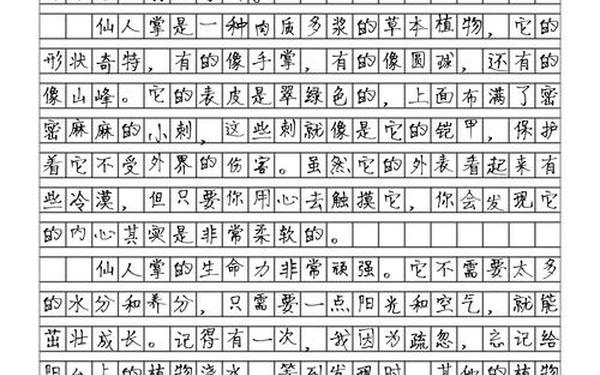 仙人掌是一种肉质多浆的草本植物，它的
形状奇特，有的像手掌，有的像圆球，还有的
像山峰。它的表皮是翠绿色的，上面布满了密
密麻麻的小刺，这些刺就像是它的铠甲，保护
着它不受外界的伤害。虽然它的外表看起来有
些冷漠，但只要你用心去触摸它，你会发现它
的内心其实是非常柔软的。
仙人掌的生命力非常顽强。它不需要太多
的水分和养分，只需要一点阳光和空气，就能
茁壮成长。记得有一次，我因为疏忽，忘记给
阳台上的植物浇水，等到发现时，其他的植物